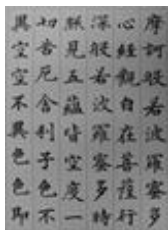 摩訶般若波羅蜜多
心經觀自在菩薩行
深般若波羅蜜多時
照見五蘊皆空度一
切苦厄舍利子色不
異空空不異色色即